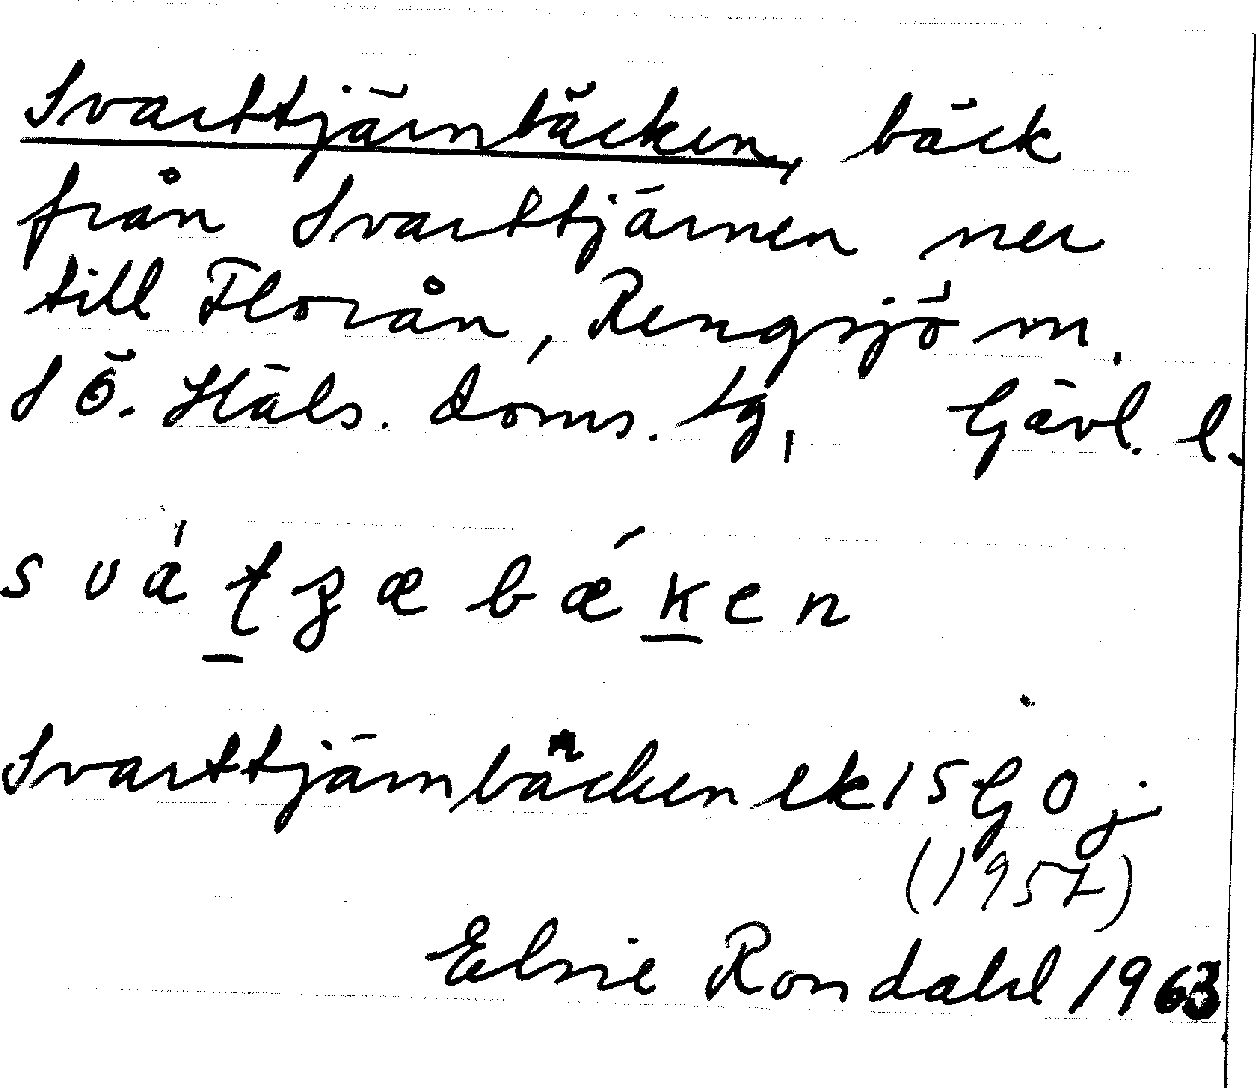 Svarttjärnbäcken, bäck
från Svarttjärnen ner
till Florån, Rengsjö sn.
SÖ. Häls. doms. tg, Gävl. l.
svátʒæbǽken
Svarttjärnbäcken ek 15 G O j
(1957)
Elsie Rondahl 1963